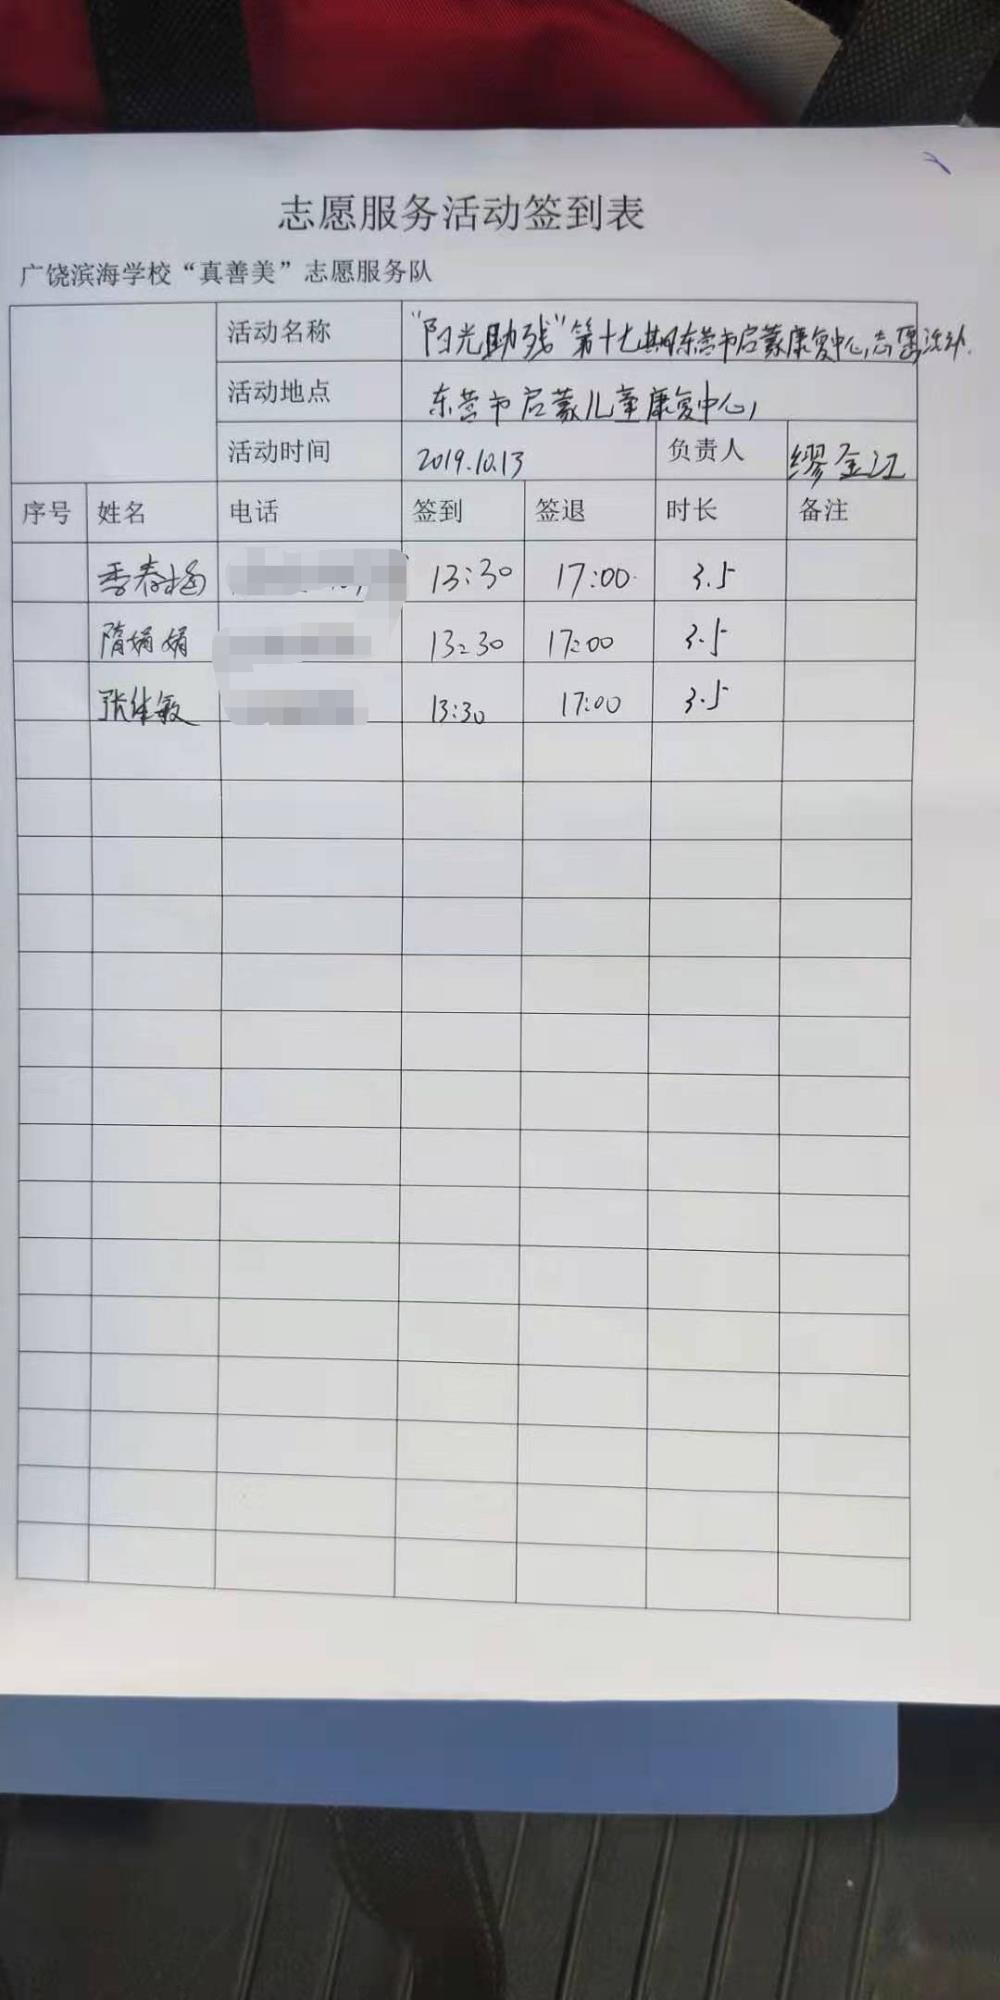 志愿服务活动签到表
广饶滨海学校“真善美”志愿服务队
活动名称 “阳光助残”第十七期东营市启蒙康复中心志愿活动
活动地点 东营市启蒙儿童康复中心
活动时间 2019.10.13 负责人 缪金江
序号 姓名 电话 签到 签退 时长 备注
季春梅 13:30 17:00 3.5
隋娟娟 13:30 17:00 3.5
张佳敏 13:30 17:00 3.5